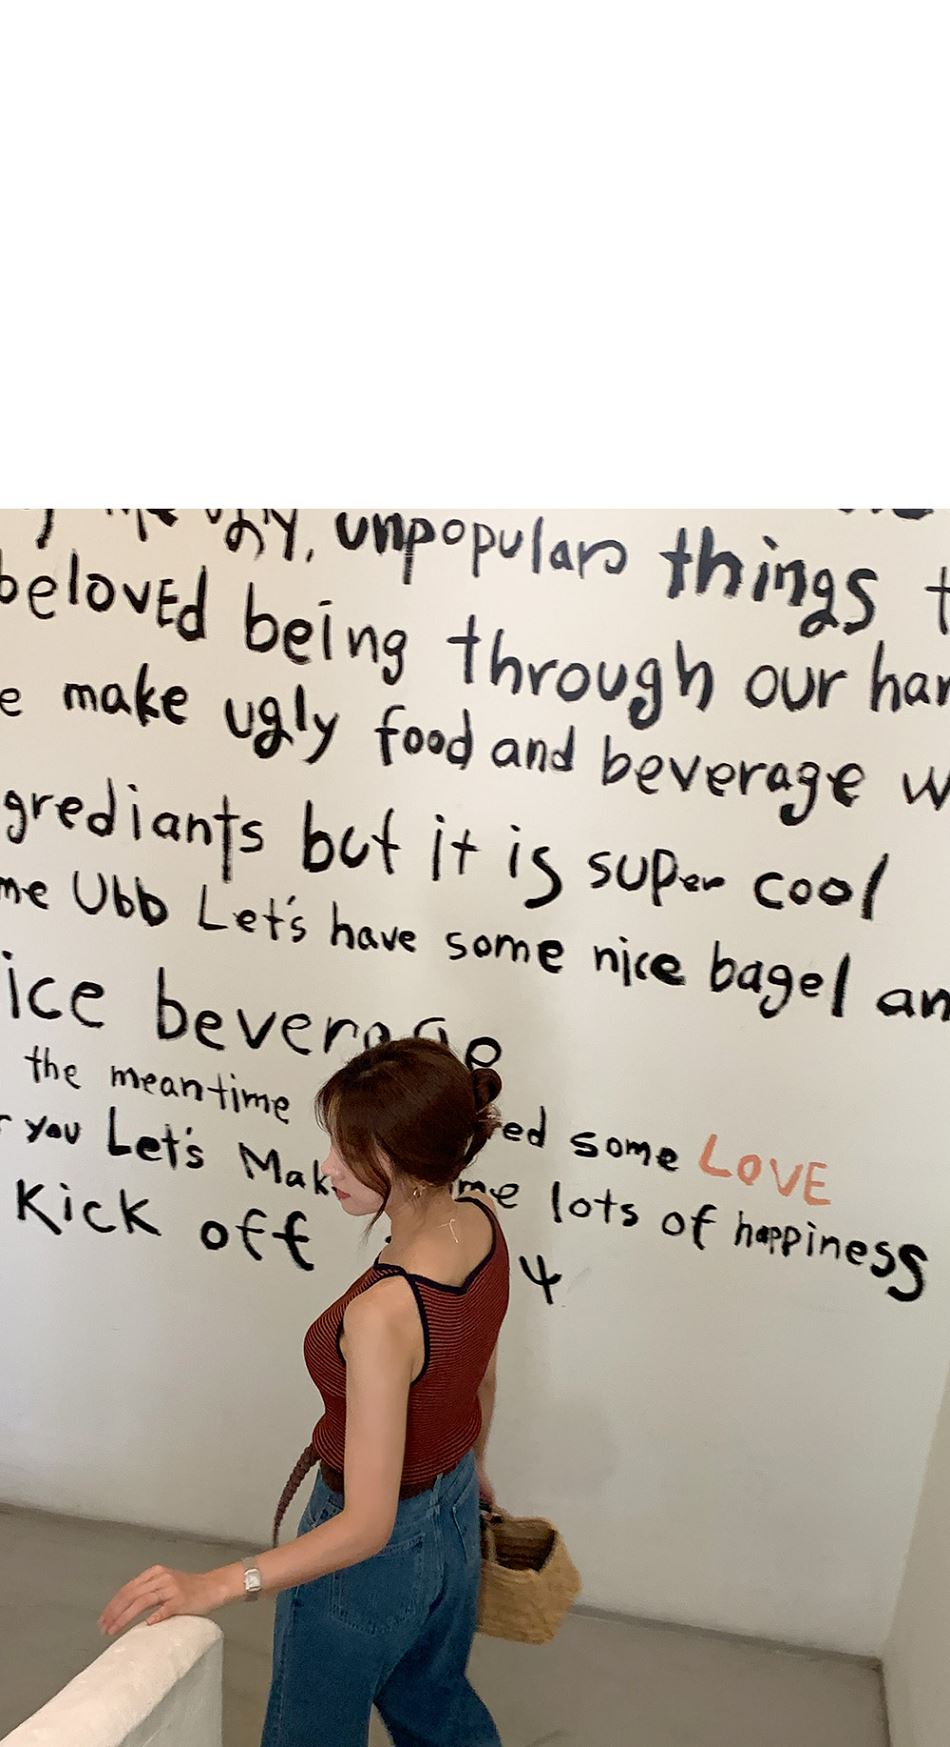 ugly, unpopular things
beloved being through our
make ugly food and beverage
grediants but it is super cool
me Ubb Let's have some nice bagel an
ice beverage
the meantime ed some LOVE
you Let's Mak me lots of happiness
Kick off